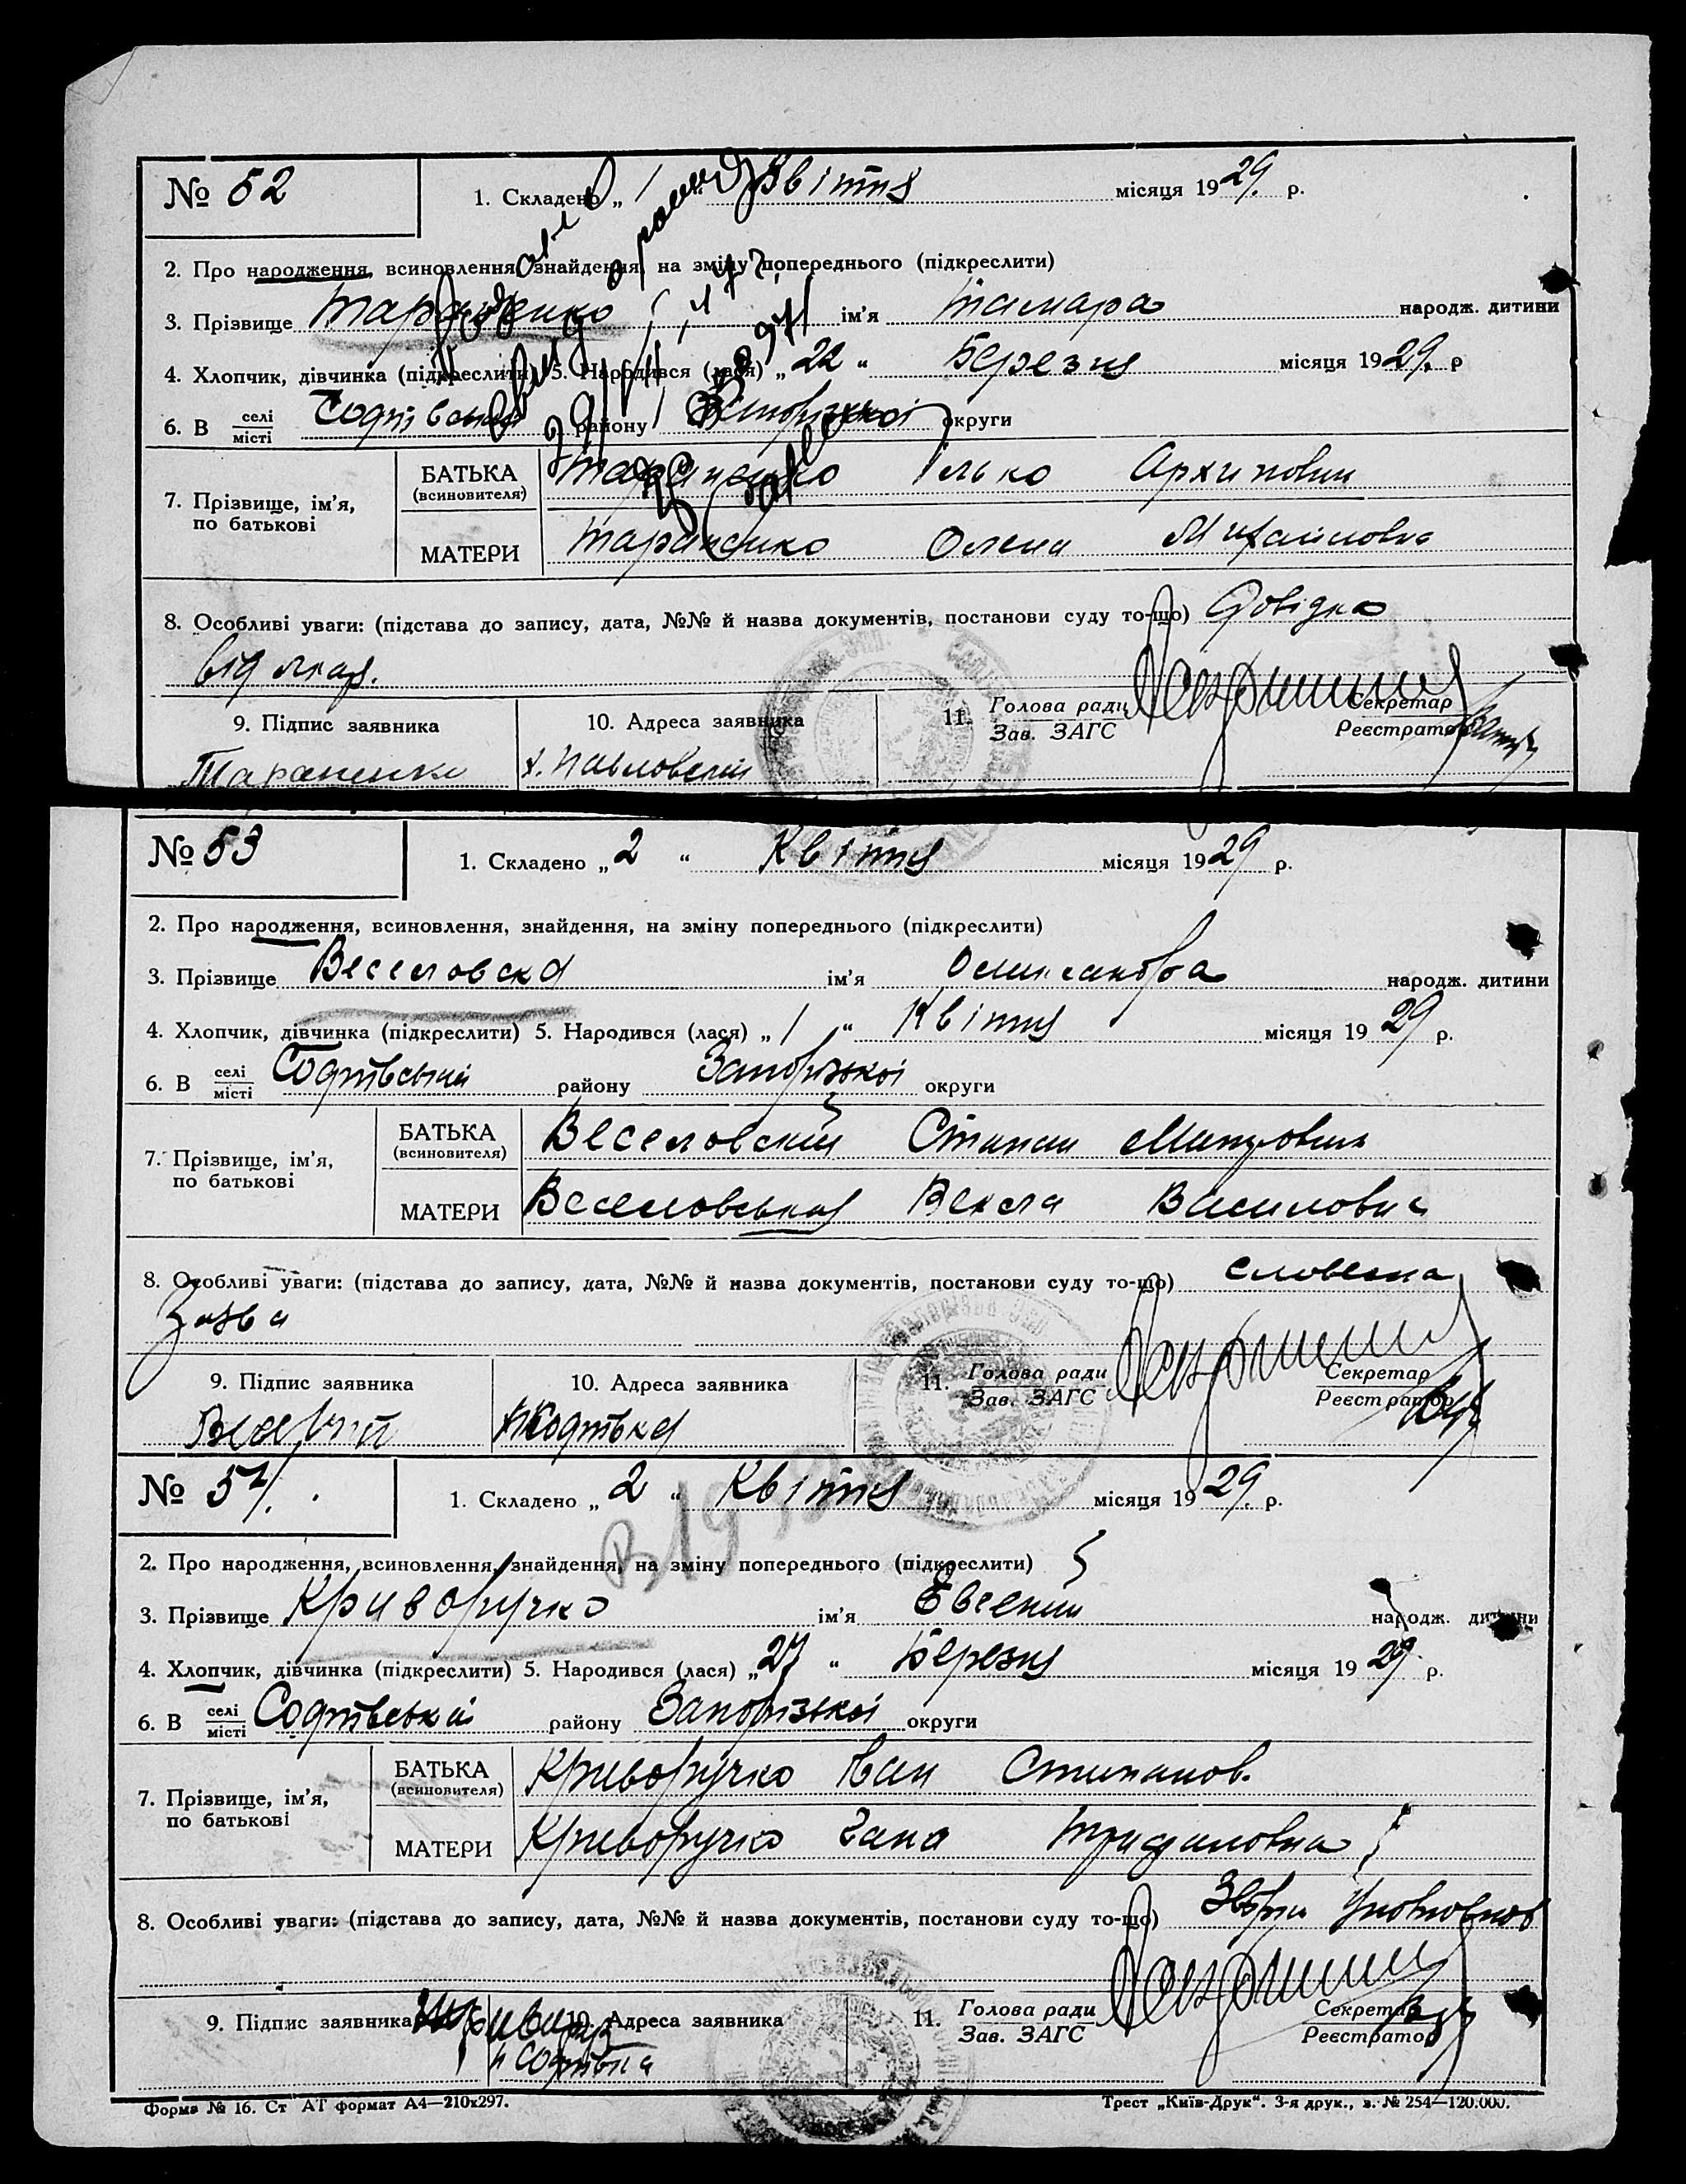 № 52
1. Складено „ 1 “ Квітня місяця 1929. р.
2. Про народження, всиновлення, знайдення, на зміну попереднього (підкреслити)
3. Прізвище Тараненко ім'я Тамара народж. дитини
4. Хлопчик, дівчинка (підкреслити) 5. Народився (лася) „ 22 “ Березня місяця 1929. р
6. В селі місті району Запорізької округи
7. Прізвище, ім'я, по батькові
БАТЬКА (всиновителя) Тараненко Ілько Архипович
МАТЕРИ Тараненко Олена Михайловна
8. Особливі уваги: (підстава до запису, дата, №№ й назва документів, постанови суду то-що) Довідка
від лікар.
9. Підпис заявника 10. Адреса заявника 11. Голова ради Зав. ЗАГС Секретар Реєстратор
Тараненко х. Павловский
№ 53
1. Складено „ 2 “ Квітня місяця 1929 р.
2. Про народження, всиновлення, знайдення, на зміну попереднього (підкреслити)
3. Прізвище Веселовска ім'я Олександра народж. дитини
4. Хлопчик, дівчинка (підкреслити) 5. Народився (лася) „ 1 “ Квітня місяця 1929 р.
6. В селі місті району Запорізької округи
7. Прізвище, ім'я, по батькові
БАТЬКА (всиновителя) Веселовский Степан
МАТЕРИ Веселовськая Векла Василовна
8. Особливі уваги: (підстава до запису, дата, №№ й назва документів, постанови суду то-що) словесна
Заява
9. Підпис заявника 10. Адреса заявника 11. Голова ради Зав. ЗАГС Секретар Реєстратор
№ 54.
1. Складено „ 2 “ Квітня місяця 1929. р.
2. Про народження, всиновлення, знайдення, на зміну попереднього (підкреслити)
3. Прізвище Криворучко ім'я Евгений народж. дитини
4. Хлопчик, дівчинка (підкреслити) 5. Народився (лася) „ 27 “ Березня місяця 1929. р.
6. В селі місті району Запорізької округи
7. Прізвище, ім'я, по батькові
БАТЬКА (всиновителя) Криворучко Іван Степанов.
МАТЕРИ Криворучко Гана
8. Особливі уваги: (підстава до запису, дата, №№ й назва документів, постанови суду то-що)
9. Підпис заявника 10. Адреса заявника 11. Голова ради Зав. ЗАГС Секретар Реєстратор
Форма № 16. Ст АТ формат А4—210x297. Трест „Київ-Друк“. 3-я друк., з. № 254—120.000.